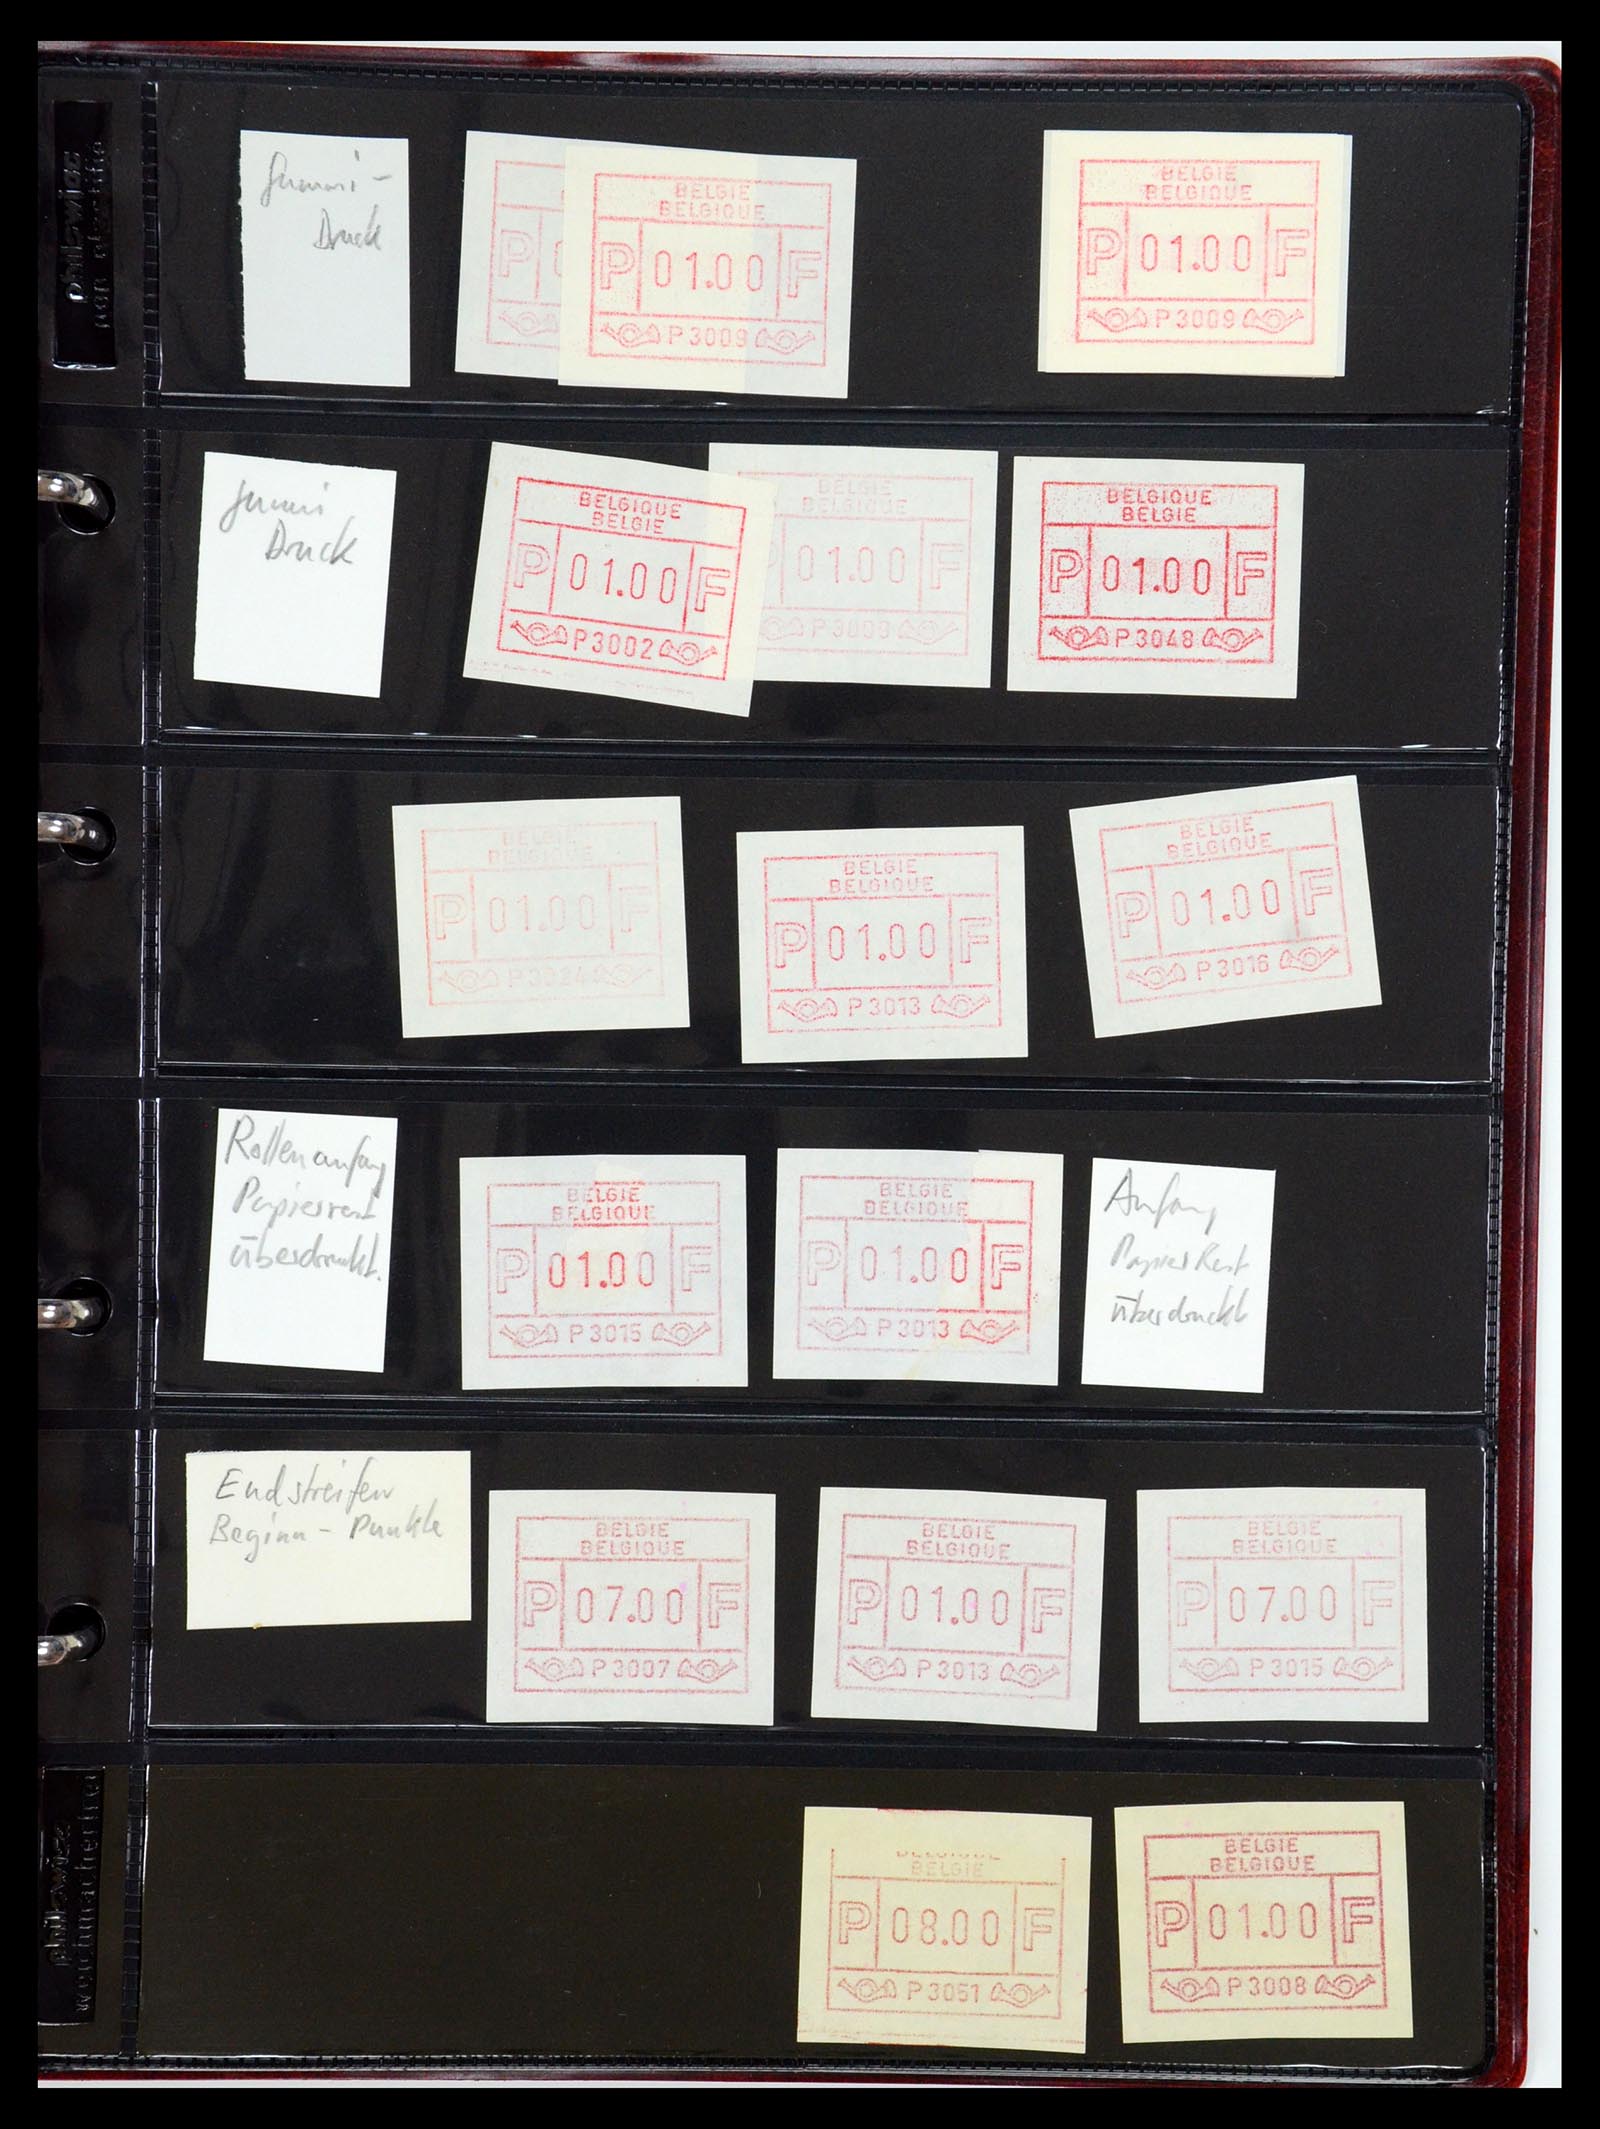 philswiss
Gummi -
Druck
P
BELGIE
BELGIQUE
P 01.00 F
P3009
BELGIE
BELGIQUE
P 01.00 F
P3009
Gummi
Druck
BELGIQUE
BELGIE
P 01.00 F
P3002
BELGIE
BELGIQUE
01.00 F
P3009
BELGIQUE
BELGIE
P 01.00 F
P3048
BELGIE
BELGIQUE
P 01.00 F
P3024
BELGIE
BELGIQUE
P 01.00 F
P3013
BELGIE
BELGIQUE
P 01.00 F
P3016
Rollenanfang
Papierrest
überdruckt.
BELGIE
BELGIQUE
P 01.00 F
P3015
BELGIE
BELGIQUE
P 01.00 F
P3013
Anfang
Papier Rest
überdruckt
Endstreifen
Beginn - Punkte
BELGIE
BELGIQUE
P 07.00 F
P3007
BELGIE
BELGIQUE
P 01.00 F
P3013
BELGIE
BELGIQUE
P 07.00 F
P3015
philswiss
weichmacherfrei
BELGIQUE
BELGIE
P 08.00 F
P3051
BELGIE
BELGIQUE
P 01.00 F
P3008